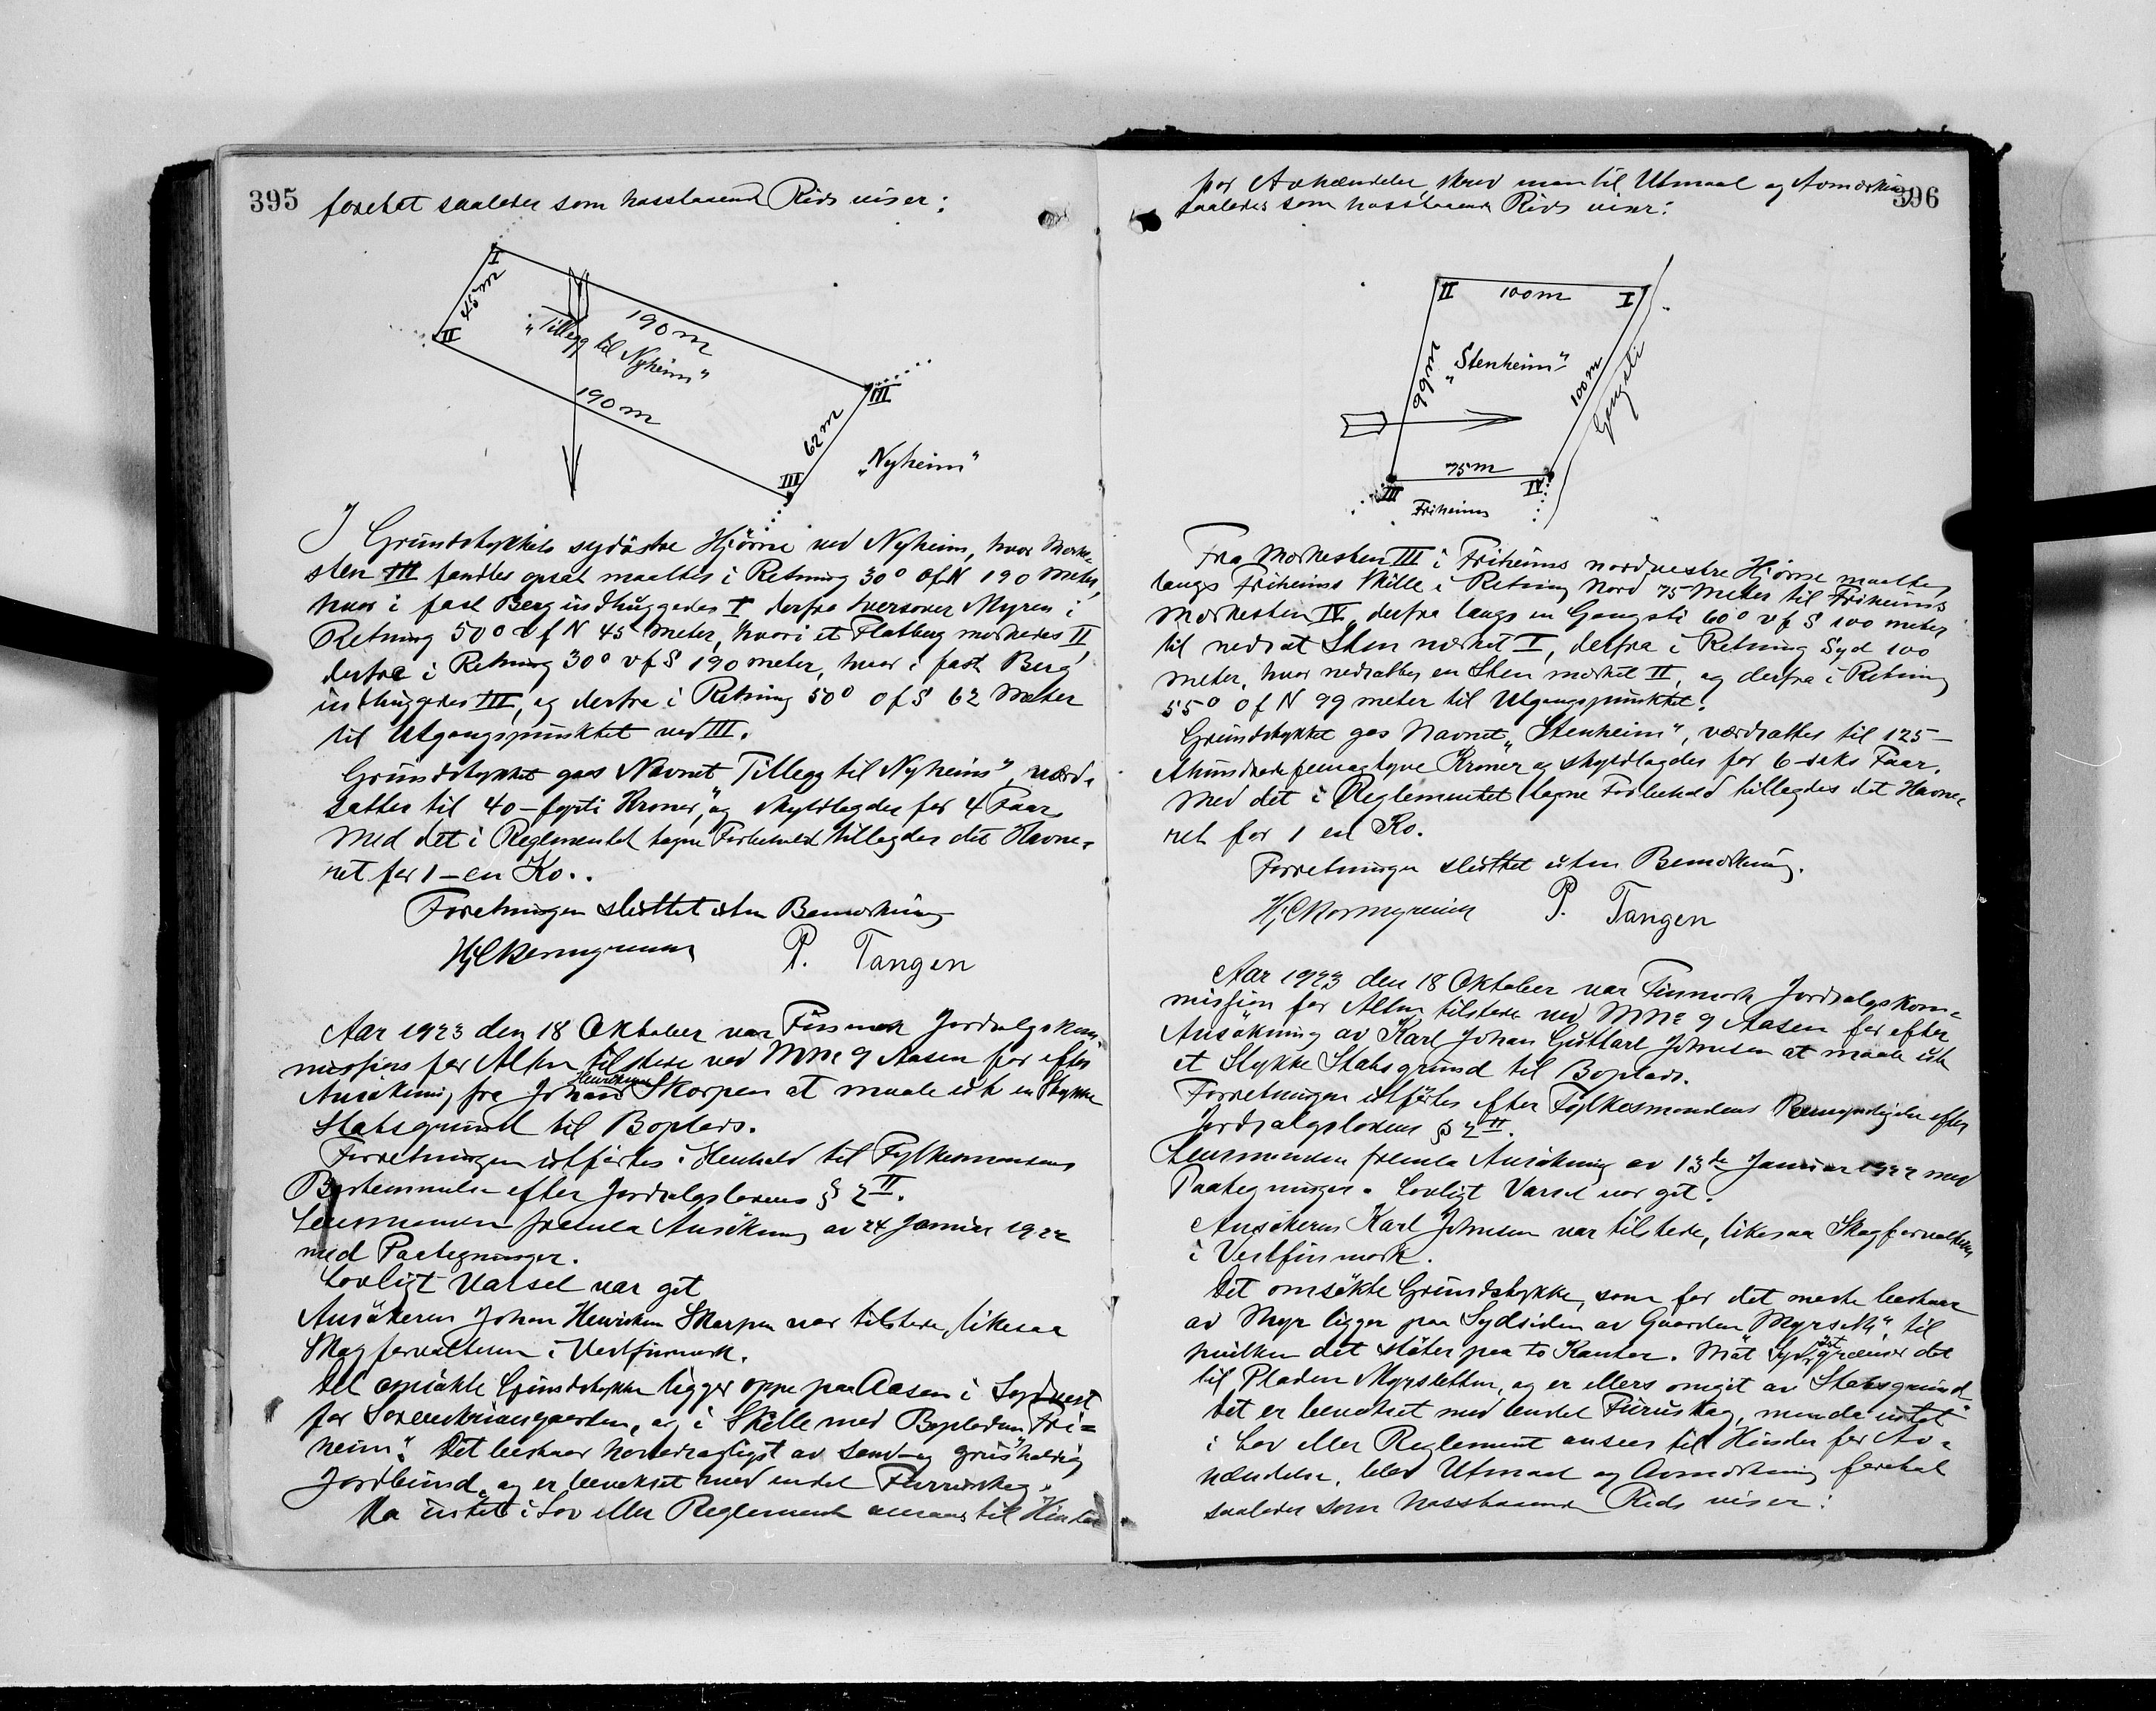 395
foretat saaledes som hosstaaende Rids viser:
I
45 m
II
190 m
"Tillegg til Nyheim"
190 m
III
62 m
III
"Nyheim"
I Grundstykkets sydöstre Hjörne ved Nyheim, hvor Merke-
sten III fandtes opsat maaltes i Retning 30° ØfN 190 Meter,
hvor i fast Berg indhuggedes I derfra tversover Myren i
Retning 50° VfN 45 Meter, hvor i et Flatberg merkedes II,
derfra i Retning 30° vfS 190 meter, hvor i fast Berg
indhuggedes III, og derfra i Retning 50° ØfS 62 Meter
til Utgangspunktet ved III.
Grundstykket gas Navnet "Tillegg til Nyheim", værd-
sattes til 40 – forti Kroner, og skyldlagdes for 4 Faar
Med det i Reglementet tagne Forbehold tillagdes det Havne-
ret for 1 – en Ko.
Forretningen sluttet uten Bemerkning
P. Tangen
Aar 1923 den 18 Oktober var Finmark Jordsalgskom-
mission for Alten tilstede ved MNr 9 Aasen for efter
Ansökning fra Johan Henriksen Skorpen at maale ut en Stykke
Statsgrund til Boplads.
Forretningen utförtes i Henhold til Fylkesmandens
Bestemmelse efter Jordsalgslovens § 2 II.
Lensmanden fremla Ansökning av 24 Januar 1922
med Paategninger.
Lovligt Varsel var git
Ansökeren Johan Henriksen Skorpen var tilstede, likesaa
Skogforvalteren i Vestfinmark.
Det omsökte Grundstykke ligger oppe paa Aasen i Sydvest
for Sorenskrivergaarden, og i Skille med Bopladsen "Fri-
heim". Det bestaar hovedsagligt av sand og grusholdig
Jordbund, og er bevokset med endel Furuskog.
Da intet i Lov eller Reglement ansaaes til Hinder
396
for Avhændelse, skred man til Utmaal og Avmerkning
saaledes som hosstaaende Rids viser:
II 100 m I
99 m
"Stenheim"
100 m
Gangsti
75 m
III IV
Friheim
Fra Merkesten III i Friheims nordvestre Hjörne maaltes
langs Friheims Skille i Retning Nord 75 Meter til Friheims
Merkesten IV, derfra langs en Gangsti 60° vfS 100 meter
til nedsat Sten merket I, derfra i Retning Syd 100
meter, hvor nedsattes en Sten merket II, og derfra i Retning
55° ØfN 99 meter til Utgangspunktet.
Grundstykket gas Navnet "Stenheim", værdsattes til 125 –
Ethundrede femogtyve Kroner og skyldlagdes for 6 – seks Faar.
Med det i Reglementet tagne Forbehold tillagdes det Havne-
ret for 1 en Ko.
Forretningen sluttet uten Bemerkning.
P. Tangen
Aar 1923 den 18 Oktober var Finmark Jordsalgskom-
mission for Alten tilstede ved MNr 9 Aasen for efter
Ansökning av Karl Johan Guttorm Johnsen at maale ut
et Stykke Statsgrund til Boplads.
Forretningen utförtes efter Fylkesmandens Bemyndigelse efter
Jordsalgslovens § 2 II.
Lensmanden fremla Ansökning av 13de Januar 1922 med
Paategninger. Lovligt Varsel var git.
Ansökeren Karl Johnsen var tilstede, likesaa Skogforvalteren
i Vestfinmark.
Det omsökte Grundstykke, som for det meste bestaar
av Myr ligger paa Sydsiden av Gaarden til
hvilken det stöter paa to Kanter. Mot Syd öst grænser det
til Pladsen Myrsletten, og er ellers omgit av Statsgrund.
Det er bevokset med endel Furuskog, men da intet
i Lov eller Reglement ansees til Hinder for Av-
hændelse, blev Utmaal og Avmerkning foretat
saaledes som hosstaaende Rids viser: